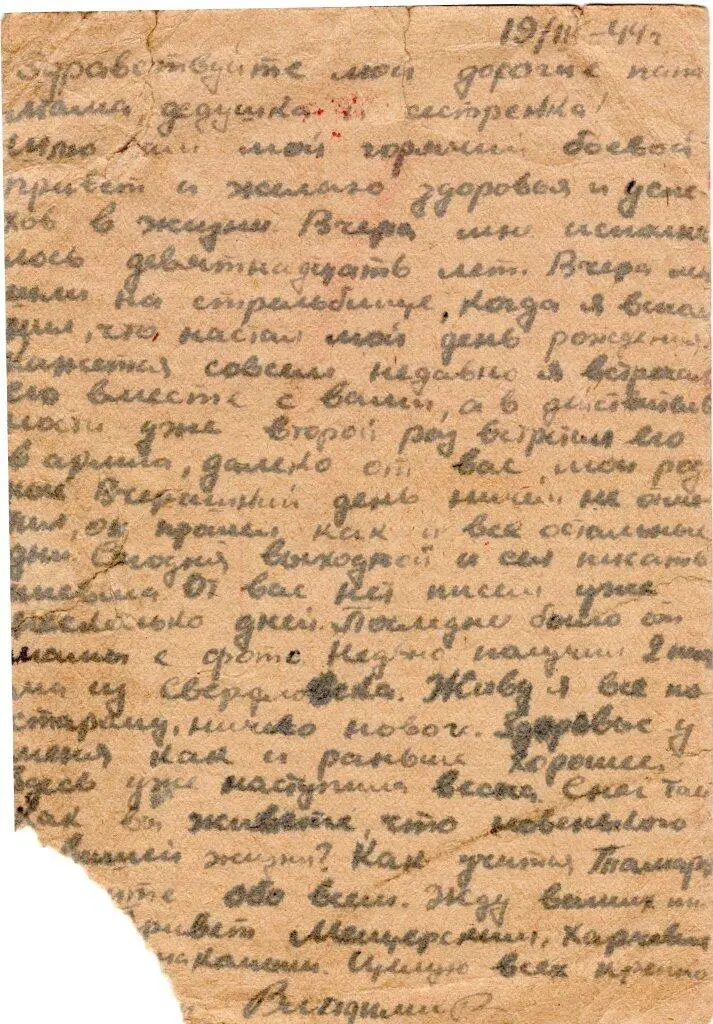 19/III-44г
Здравствуйте мои дорогие папа
мама, дедушка и сестренка!
Шлю вам мой горячий боевой
привет и желаю здоровья и успе-
хов в жизни. Вчера мне исполни
лось девятнадцать лет. Вчера мы
были на стрельбище, когда я вспом
нил, что настал мой день рождения.
Кажется совсем недавно я встречал
его вместе с вами, а в действитель
ности уже второй раз встретил его
в армии, далеко от вас, мои род
ные. Вчерашний день ничем не отме
тил, он прошел как и все остальные
дни. Сегодня выходной и сел писать
письма. От вас нет писем уже
несколько дней. Последнее было от
мамы с фото. Недавно получил 2 пись
ма из Свердловска. Живу я все по
старому, ничего нового. Здоровье у
меня как и раньше хорошее.
Здесь уже наступила весна. Снег тает
Как вы живете, что новенького
в вашей жизни? Как учится Тамара
ите обо всем. Жду ваших пи
Привет Мещерским, Харчевым
накомым. Целую всех крепко
Владимир